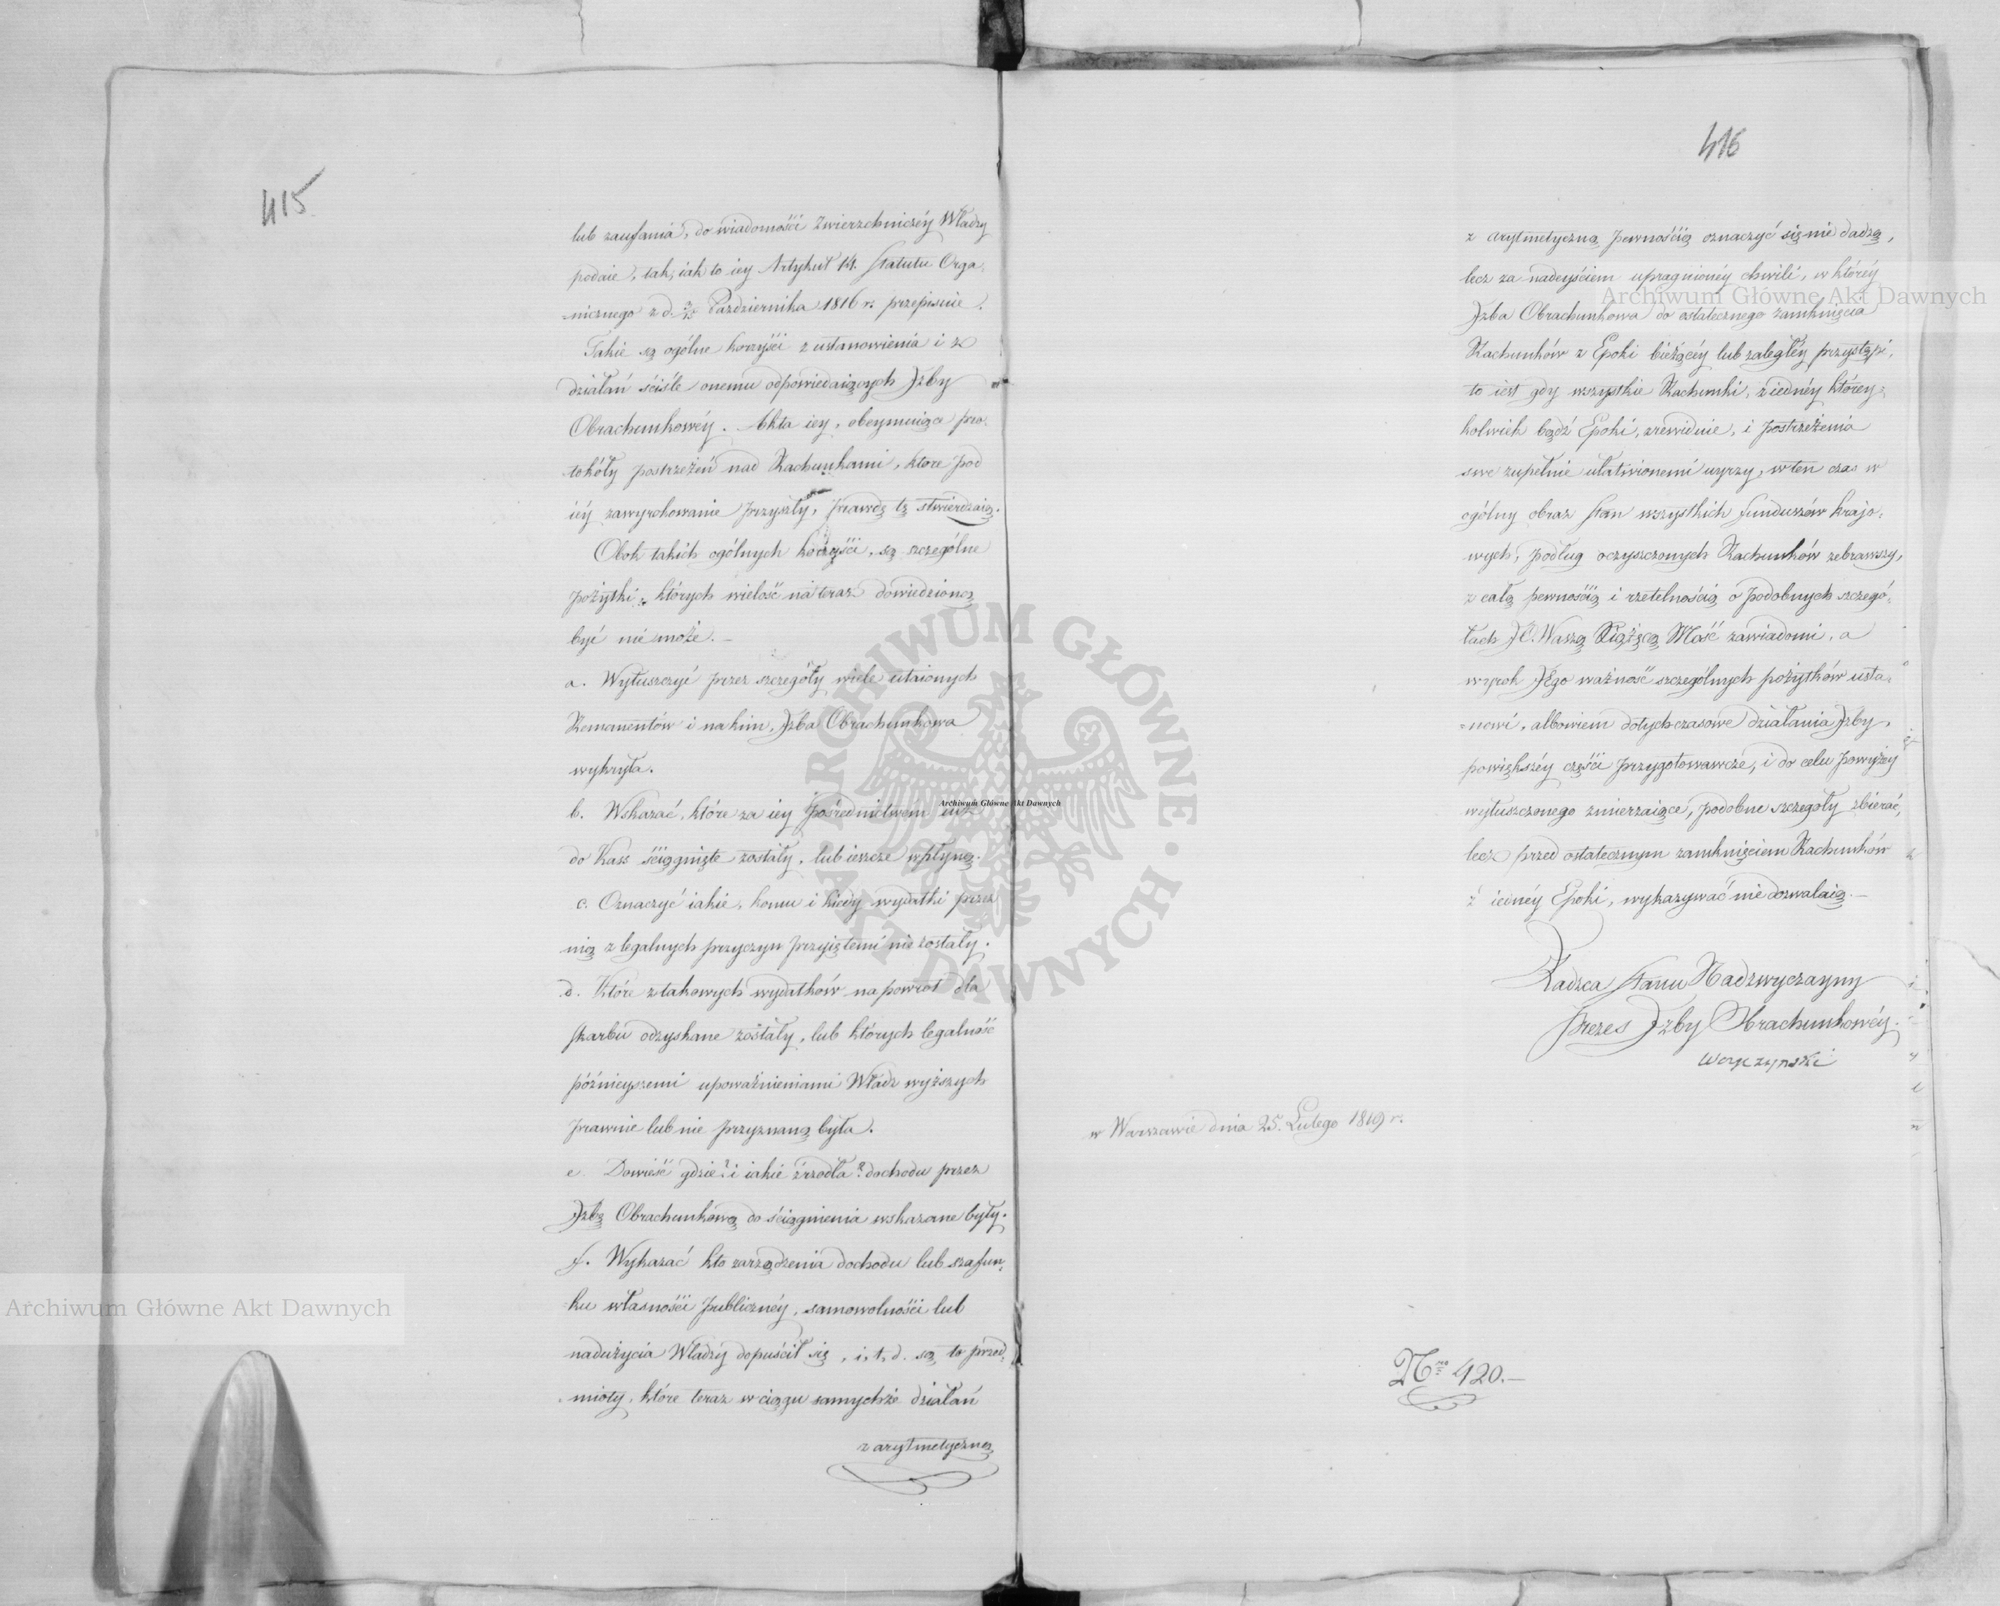 415
lub zaufania, do wiadomości Zwierzchniczéy Władzy
podaie, tak, iak to iey Artykuł 14. Statutu Orga-
=nicznego z d. Października 1816 r. przepisuie.
Takie są ogólne korzyści z ustanowienia i z
działań ściśle onemu odpowiedaiących Jzby
Obrachunkowéy. Akta iey, obeymuiące pro-
tokóły postrzeżeń nad Rachunkami, które pod
iéy zawyrokowanie przyszły, prawdę tę stwierdzaią.
Obok takich ogólnych korzyści, są szczególne
pożytki, których wielość na teraz dowiedzioną
być nie może. —
a. Wyłuszczyć przez szczegóły wiele utaionych
Remanentów i na kim, Jzba Obrachunkowa
wykryła.
b. Wskazać, które za iey pośrednictwem iuż
do Kass ściągnięte zostały, lub ieszcze wpłyną.
c. Oznaczyć iakie, komu i kiedy wydatki przez
nią z legalnych przyczyn przyiętemi nie zostały.
d. Które z takowych wydatków na powrót dla
skarbu odzyskane zostały, lub których legalność
późnieyszemi upoważnieniami Władz wyższych
prawnie lub nie przyznaną była.
e. Dowieść gdzie? i iakie źrzodła? dochodu przez
Jzbę Obrachunkową do ściągnienia wskazane były.
f. Wykazać kto zarządzenia dochodu lub szafun-
ku własności publicznéy, samowolności lub
nadużycia Władzy dopuścił się, i, t, d. są to przed-
mioty, które teraz w ciągu samychże działań
z arytmetyczną
416
z arytmetyczną pewnością oznaczyć się nie dadzą,
lecz za nadeyściem upragnionéy chwili, w któréy
Jzba Obrachunkowa do ostatecznego zamknięcia
Rachunków z Epoki bieżącéy lub zaległéy przystąpi,
to iest gdy wszystkie Rachunki, z iednéy którey-
kolwiek bądź Epoki, zrewiduie, i postrzeżenia
swe zupełnie ułatwionemi uyrzy, w ten czas w
ogólny obraz stan wszystkich funduszów krajo-
wych, podług oczyszczonych Rachunków zebrawszy,
z całą pewnością i rzetelnością o podobnych szczegó-
łach J.O. Waszą Xiążęcą Mość zawiadomi, a
wzrok Jego ważność szczególnych pożytków usta-
=nowi, albowiem dotychczasowe działania Jzby,
powiększéy części przygotowawcze, i do celu powyżey
wyłuszczonego zmierzaiące, podobne szczegóły zbierać,
lecz przed ostatecznym zamknięciem Rachunków
z iednéy Epoki, wykazywać nie dozwalaią. —
Radzca Stanu Nadzwyczayny
Prezes Jzby Obrachunkowéy.
Woyczyński
w Warszawie dnia 25. Lutego 1819 r.
Nro 420. —
Archiwum Główne Akt Dawnych
Archiwum Główne Akt Dawnych
Archiwum Główne Akt Dawnych
ARCHIWUM GŁÓWNE AKT DAWNYCH